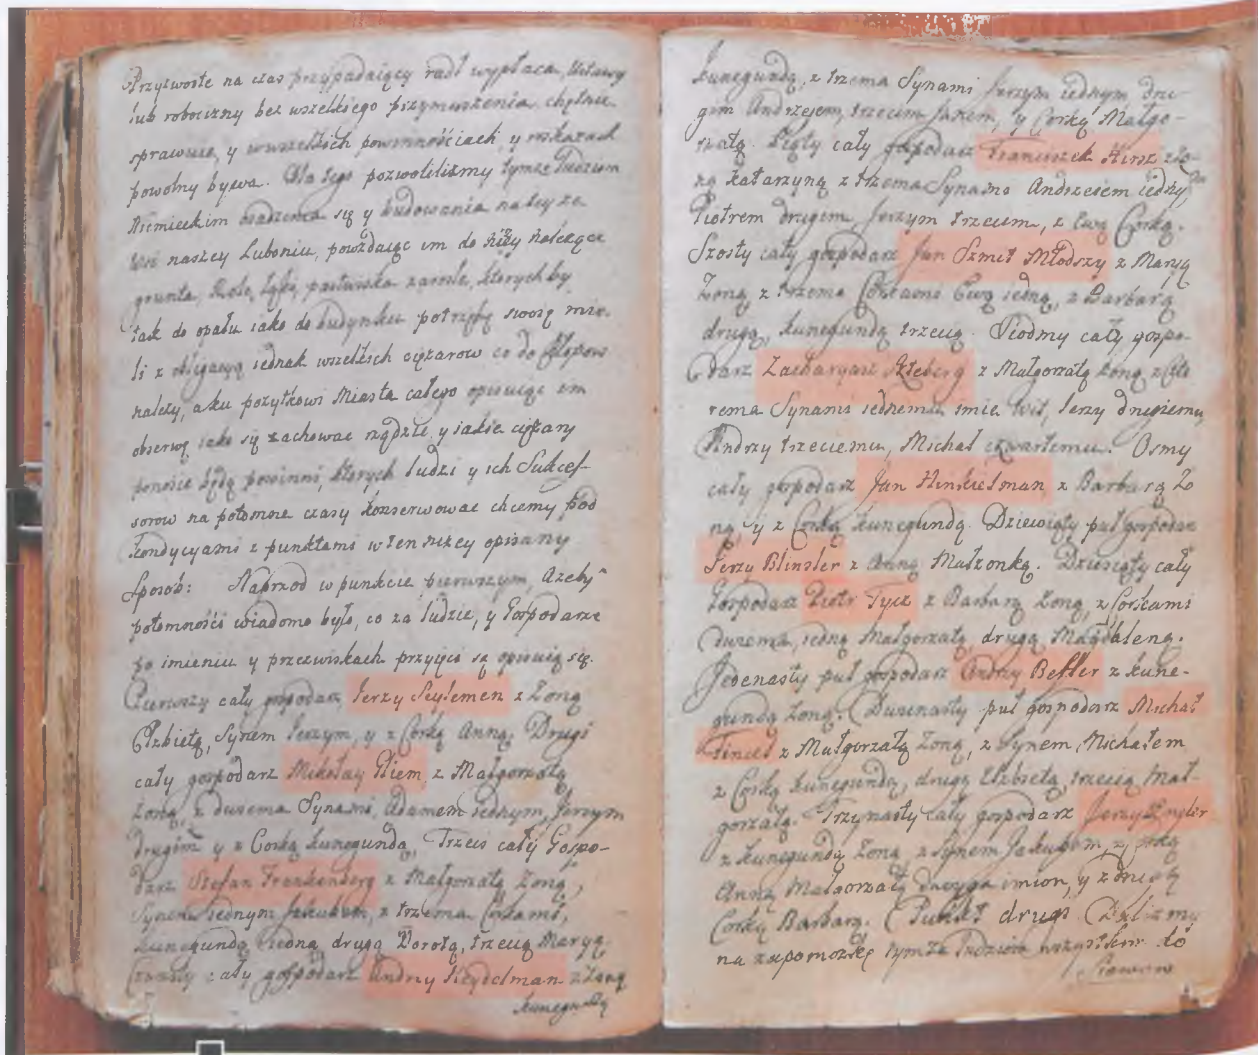 Przyzwoite na czas przypadaiący radl wypłaca, Ustawy
lub robocizny bez wszelkiego przymuszenia chętnie
sprawuie, y wwszelkich powinnościach, y roskazach
powolny bywa. Dla tego pozwolilismy tymże Ludziom
Niemieckim osadzenia się y budowania na teyże
Wsi naszey Luboniu, powzdaiąc im do niży należące
grunta, Role, łąki, pastwiska zarosle, ktorych by
tak do opału iako do budynku potrzebę swoię mie-
li z obligacyą iednak wszelkich ciężarow co do
należy, a ku pożytkowi Miasta całego opisuiąc im
obserwę iako się zachować rządzie, y iakie ciężary
ponosić będą powinni, ktorych ludzi y ich Sukces-
sorow na potomne czasy konserwować chcemy pod
kondycyami z punktami w ten niżey opisany
Sposob: Naprzod w punkcie pierwszym, Ażeby
potomności wiadomo było, co za ludzie, y Gospodarze
po imieniu y przezwiskach przyięci są opisuią się.
Pierwszy cały gospodarz Jerzy Seylemen z Zoną
Elzbietą, Synem Jerzym, y z Corką Anną. Drugi
cały gospodarz Mikołay Riem z Małgorzatą
Zoną, z dwiema Synami, Adamem iednym, Jerzym
drugim y z Corką Kunegundą, Trzeci cały Gospo-
darz Stefan Frankenberg z Małgorzatą Zoną,
Synem iednym Jakubem, z trzema Corkami,
Kunegundą iedną, drugą Dorotą, trzecią Maryą.
Czwarty cały gospodarz Andrzy Heydelman z Zoną
Kunegundą
Kunegundą, z trzema Synami Jerzym iednym, dru-
gim Andrzejem, trzecim Janem, y Corką Małgo-
rzatą. Piąty cały gospodarz Franciszek Hirsz z Zo-
ną Katarzyną z trzema Synami Andrzeiem iednym,
Piotrem drugim Jerzym trzecim, z Ewą Corką.
Szosty cały gospodarz Jan Szmit Młodszy z Maryą
Zoną, z trzema Corkami Ewą iedną, z Barbarą
drugą, Kunegundą trzecią. Siodmy cały gospo-
darz Zacharyasz z Małgorzatą Zoną z czte
rema Synami iednemu imie Wit, Jerzy drugiemu,
Andrzy trzeciemu, Michał czwartemu. Osmy
cały gospodarz Jan Hinkielman z Barbarą Zo
ną, y z Corką Kunegundą. Dziewiąty puł gospodarz
Jerzy Blinsler z Anną Małzonką. Dziesiąty cały
Gospodarz Piotr Tycz z Barbarą Zoną, z Corkami
dwiema, iedną Małgorzatą, drugą Magdaleną.
Jedenasty puł gospodarz Andrzy Bekler z Kune-
gundą Zoną. Dwunasty puł gospodarz Michał
Finceł z Małgorzatą Zoną, z Synem Michałem
z Corką Kunegundą, drugą Elzbietą, trzecią Mał-
gorzatą. Trzynasty cały gospodarz Jerzy
z Kunegundą Zoną, z Synem Jakubem, z Corką
Anną Małgorzatą dwoyga imion, y z drugą
Corką Barbarą. Punkt drugi Dalismy
na zapomożkę tymże Ludziom wszystkim do